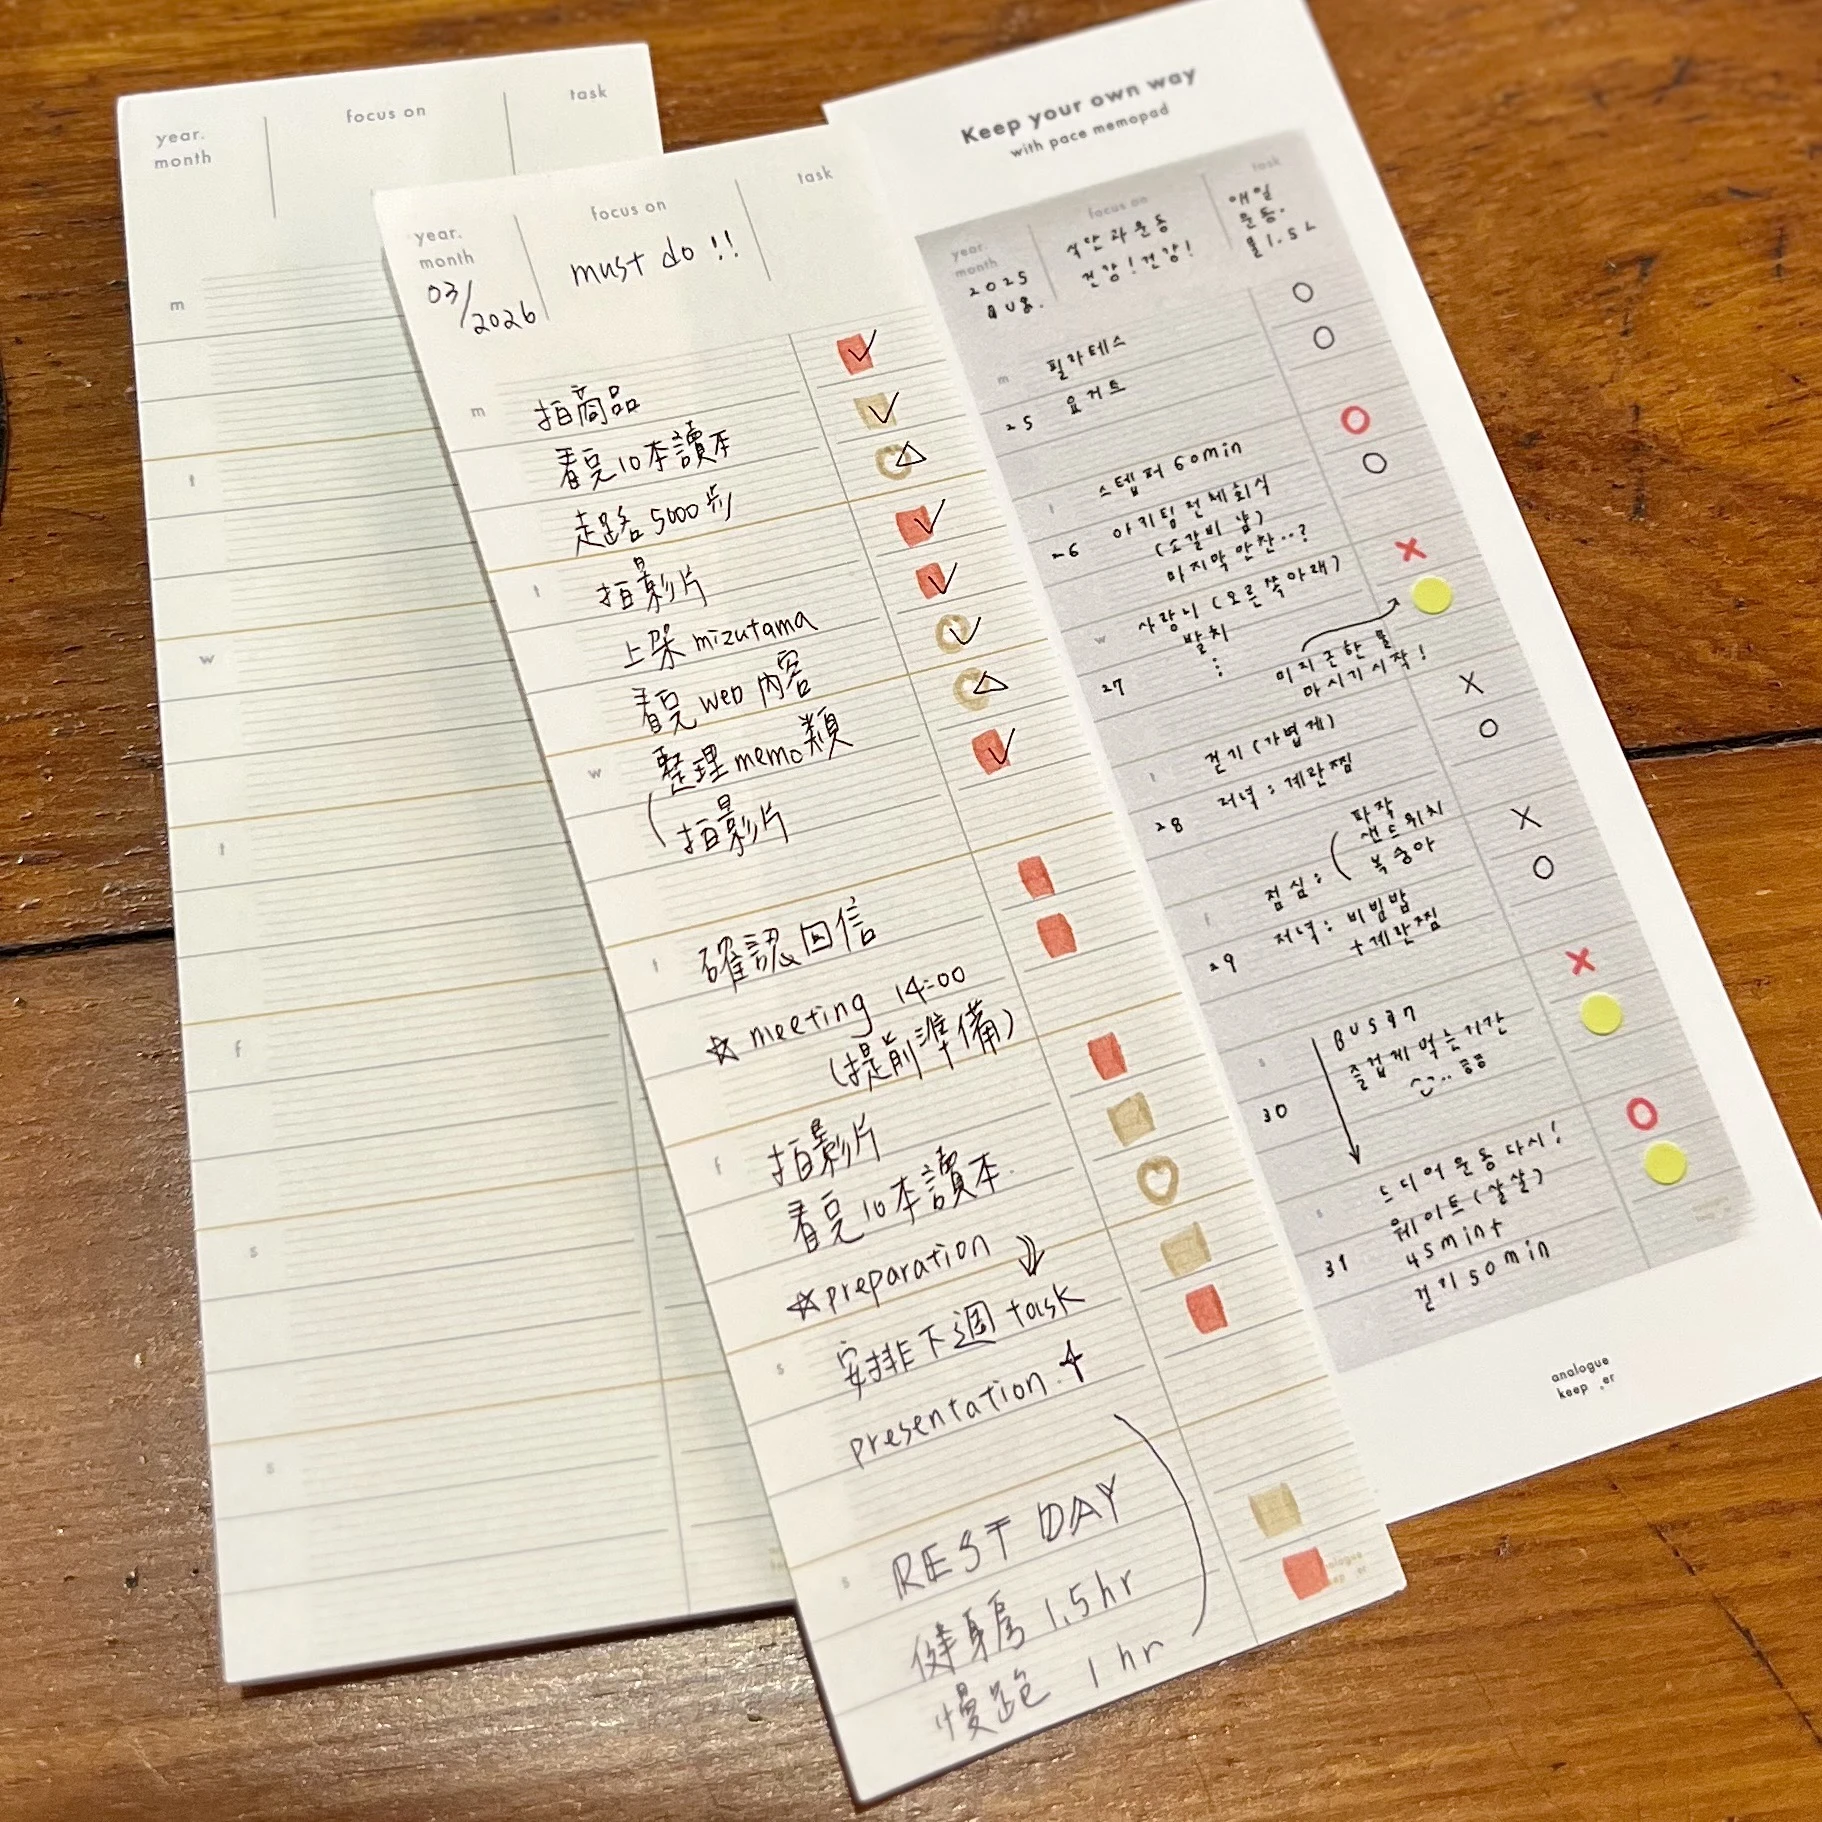 year.
month
focus on
task
m
t
w
t
f
s
s
year.
month
03/2026
focus on
must do !!
task
m
拍商品
看完10本讀本
走路5000步
t
拍影片
上架 mizutama
看完 web 內容
w
整理 memo 類
(拍影片
t
確認回信
☆ meeting 14:00
(提前準備)
f
拍影片
看完10本讀本.
☆ preparation
s
安排下週 task
presentation
s
REST DAY
健身房 1.5hr
慢跑 1hr
analogue
keep_er
Keep your own way
with pace memopad
year.
month
2025
AUG.
focus on
식단과 운동
건강! 건강!
task
매일
운동.
물 1.5L
m
25
필라테스
요거트
t
26
스텝퍼 60min
아키팀 전체회식
(소갈비 냠)
마지막 만찬..?
w
27
사랑니 (오른쪽 아래)
발치
미지근한 물
마시기 시작!
t
28
걷기 (가볍게)
저녁 : 계란찜
f
29
점심 : (
파작
샌드위치
복숭아
저녁 : 비빔밥
+계란찜
s
30
BUSAN
즐겁게 먹는 기간
s
31
드디어 운동 다시!
웨이트 (살살)
45min+
걷기 50min
analogue
keep_er